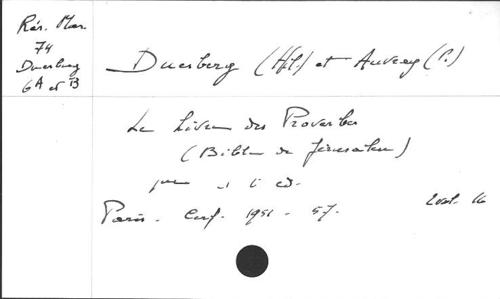 Rés. Mar.
74
Duesberg
6A et B
Duesberg (Hil.) et Auvray (P.)
Le Livre des Proverbes
(Bible de Jérusalem)
éd.
Paris. Cerf. 1951 - 57.
2 vol. 16